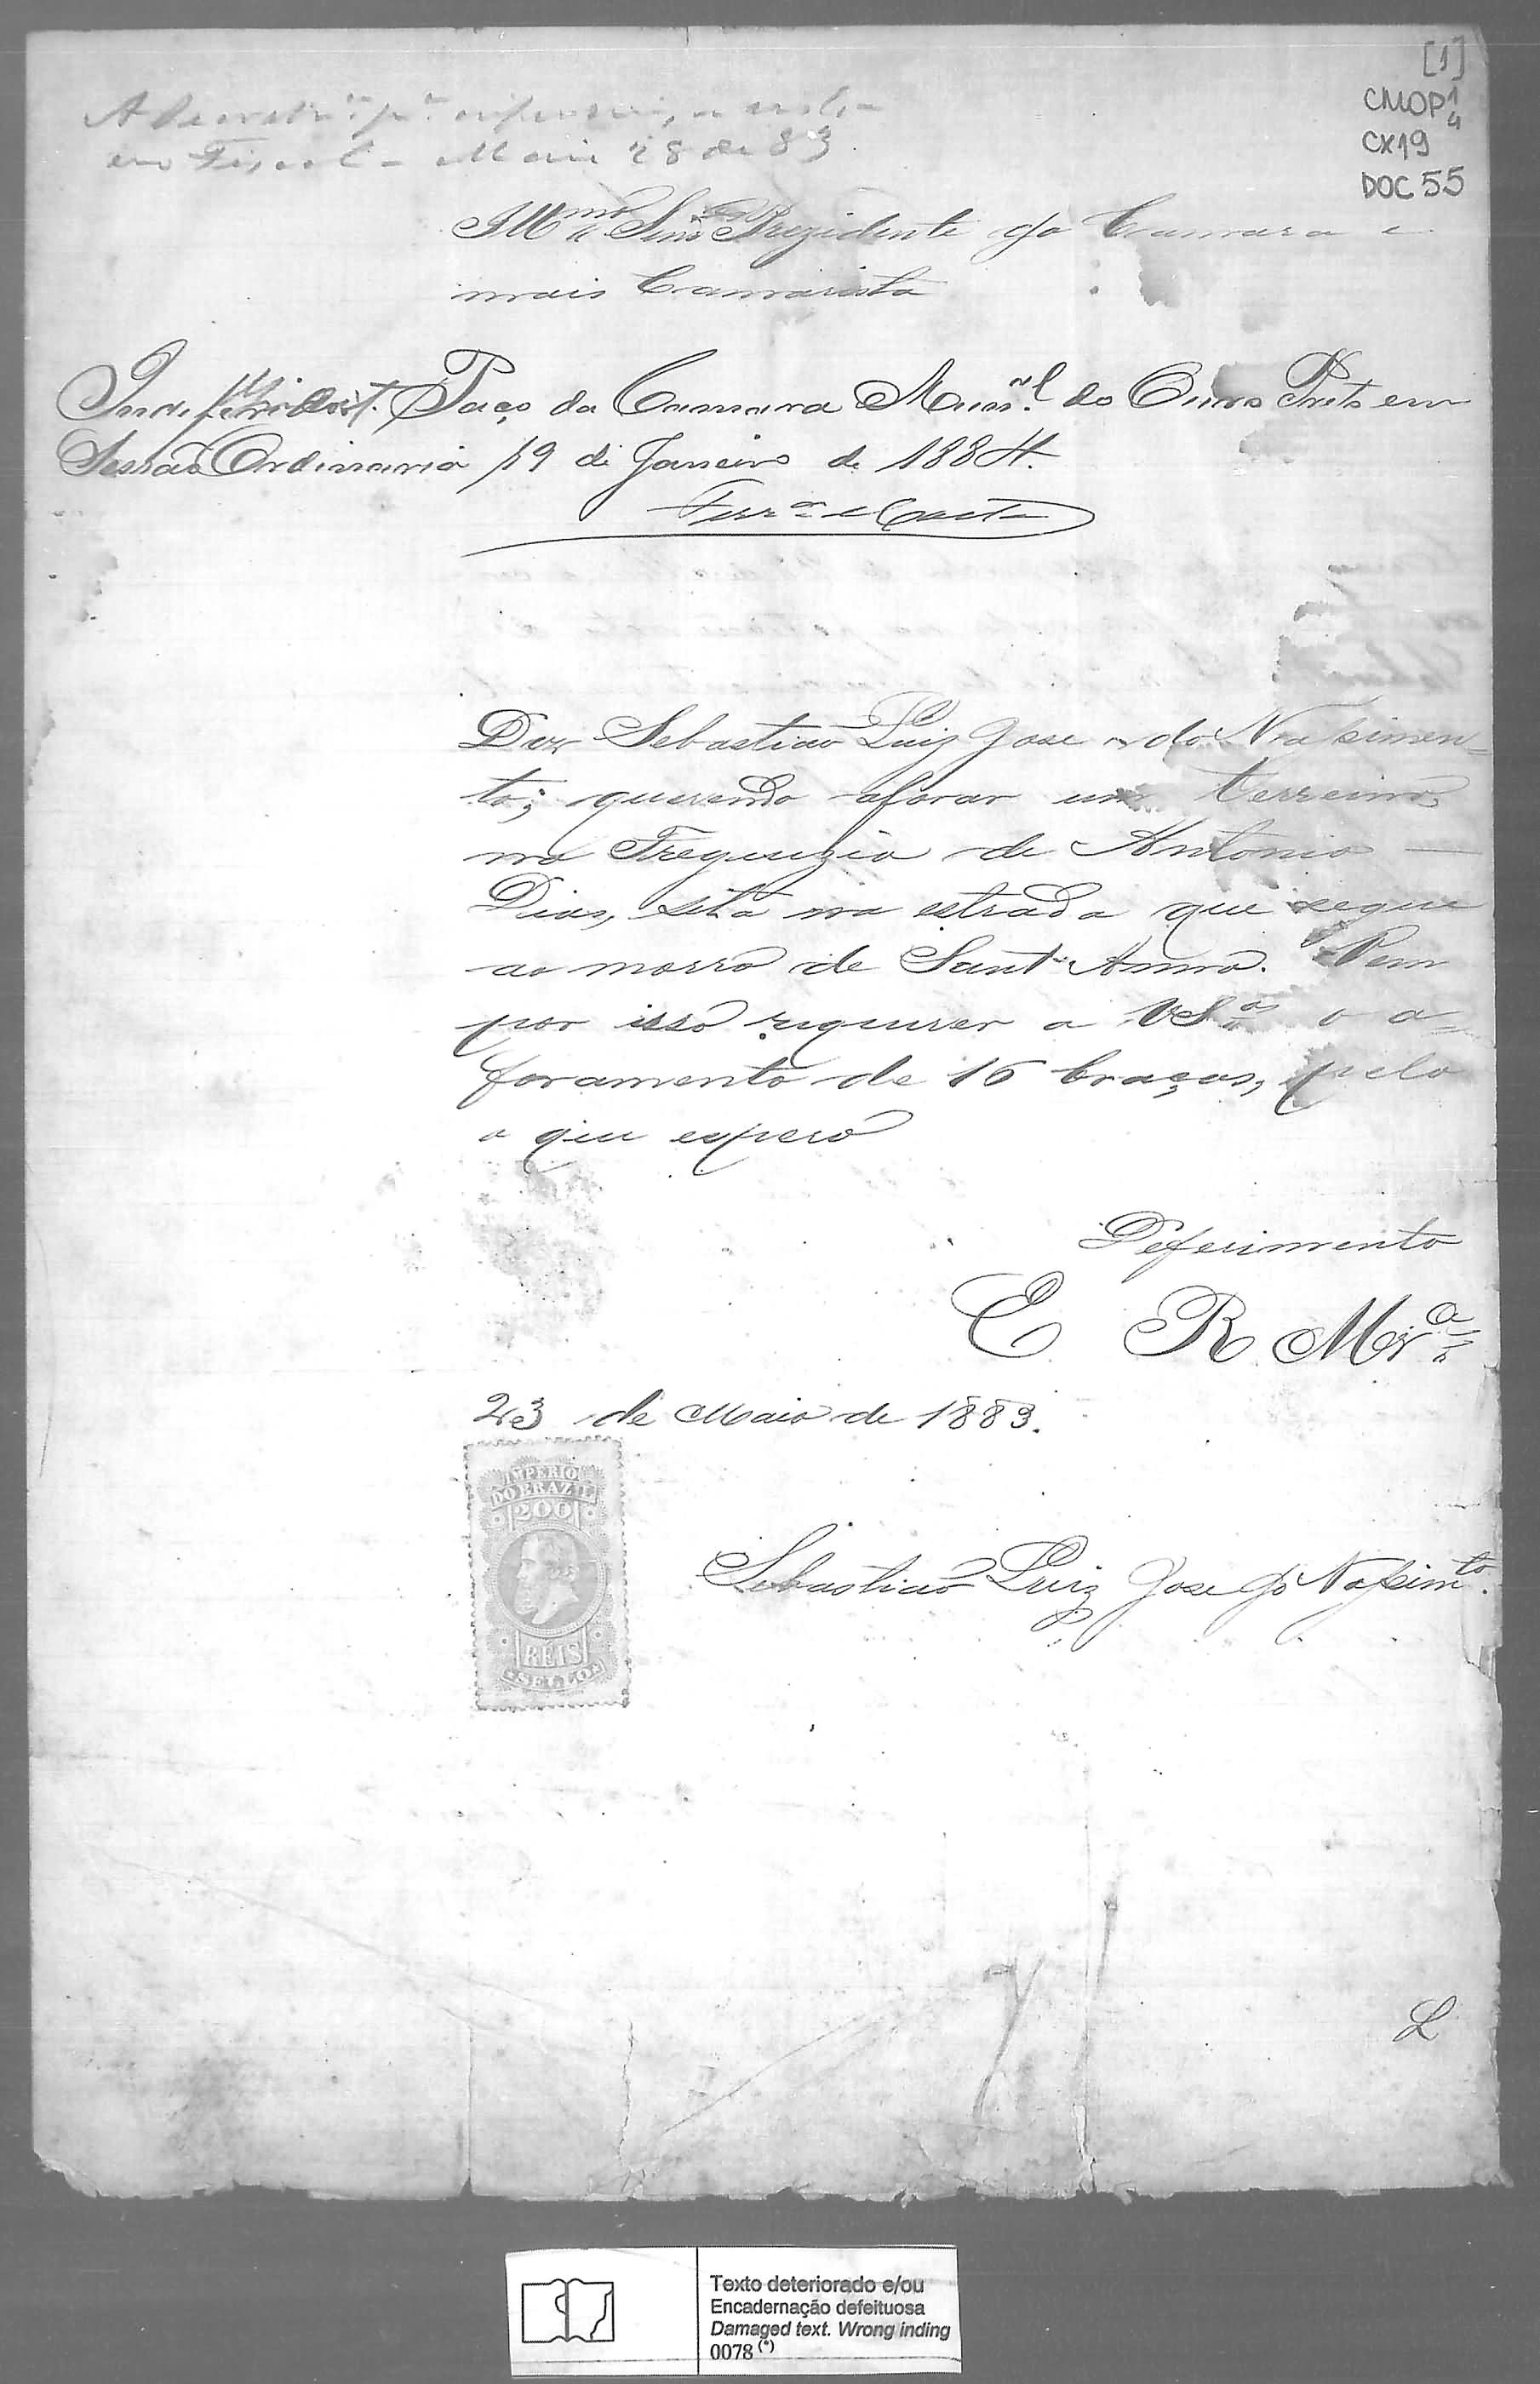 [1]
CMOP 1/4
CX19
DOC 55
em Fiscal - Maio 28 de 83
Illmo Snr Prezidente da Camara e
mais Camarista
Indeferido. Paço da Camara Munal do Ouro Preto em
Sessão Ordinaria 19 de Janeiro de 1884.
Ferra
Diz Sebastião Luiz Jose do Nassimen-
to; querendo aforar um terreno
na Freguezia de Antonio
Dias, sita na estrada que segue
ao morro de Sant'Anna. Vem
por isso requerer a VSas o a-
foramento de 16 braças, pelo
o que espero
Deferimento
E R Mca
23 de Maio de 1883.
IMPERIO
DO BRAZIL
200
RÉIS
SELLO
Sebastião Luiz Jose do Nassimto.
Texto deteriorado e/ou
Encadernação defeituosa
Damaged text. Wrong inding
0078 (*)